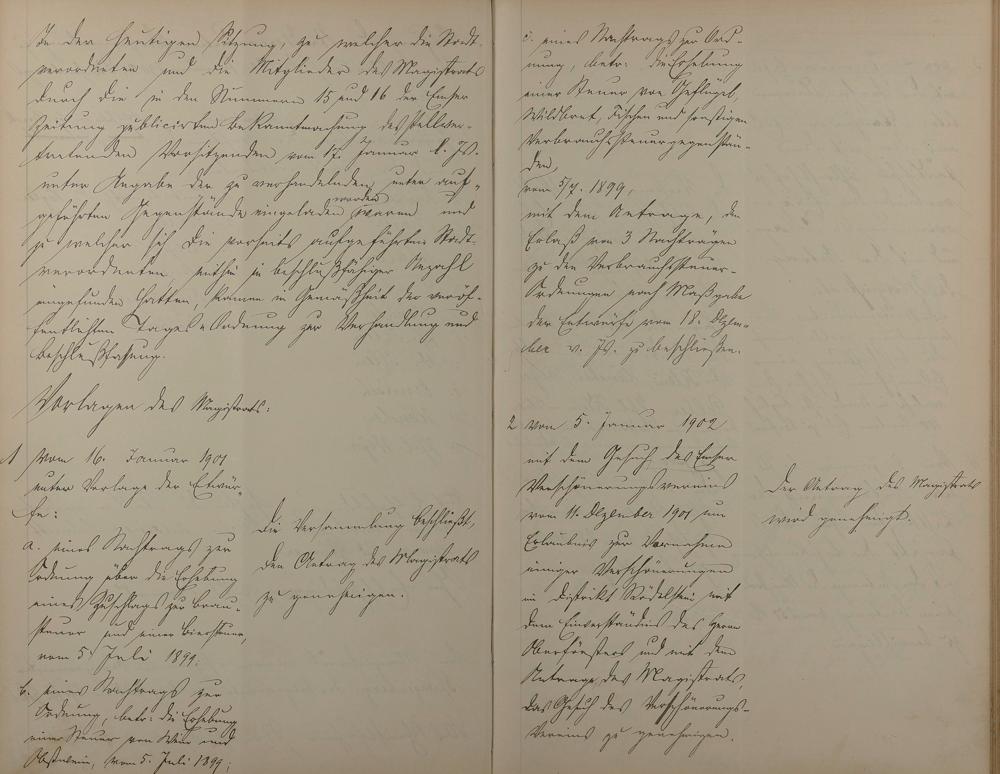 In der heutigen Sitzung, zu welcher die Stadt-
verordneten und die Mitglieder des Magistrats
durch die in den Nummern 15 und 16 der Emser
Zeitung publicirten Bekanntmachung des stellver-
tretenden Vorsitzenden vom 17. Januar l. Js.
unter Angabe der zu verhandelnden unten auf-
geführten Gegenstände eingeladen worden waren und
zu welcher sich die vorseits aufgeführten Stadt-
verordneten, mithin in beschlußfähiger Anzahl
eingefunden hatten, kamen in Gemäßheit der veröf-
fentlichten Tages-Ordnung zur Verhandlung und
Beschlußfassung.
Vorlagen des Magistrats:
1 Vom 16. Januar 1901
unter Vorlage der Etwür-
fe:
a. eines Nachtrags zur
Ordnung über die Erhebung
eines Zuschlags zur Brau-
steuer und einer Biersteuer,
vom 5. Juli 1899;
b. eines Nachtrags zur
Ordnung, betr: die Erhebung
einer Steuer von Wein und
Obstwein, vom 5. Juli 1899;
Die Versammlung beschließt,
den Antrag des Magistrats
zu genehmigen.
c. eines Nachtrags zur Ord-
nung, betr: die Erhebung
einer Steuer von Geflügel,
Wildbret, Fischen und sonstigen
Verbrauchssteuergegenstän-
den,
vom 5/7. 1899,
mit dem Antrage, den
Erlaß von 3 Nachträgen
zu den Verbrauchssteuer-
Ordnungen nach Maßgabe
der Entwürfe vom 18. Dezem-
ber v. Js. zu beschließen.
2 Vom 5. Januar 1902
mit dem Gesuch des Emser
Verschönerungsvereins
vom 11. Dezember 1901 um
Erlaubnis zur Vornahme
einiger Verschönerungen
im Distrikt mit
dem Einverständnis des Herrn
Oberförsters und mit dem
Antrage des Magistrats,
das Gesuch des Verschönerungs-
Vereins zu genehmigen.
Der Antrag des Magistrats
wird genehmigt.